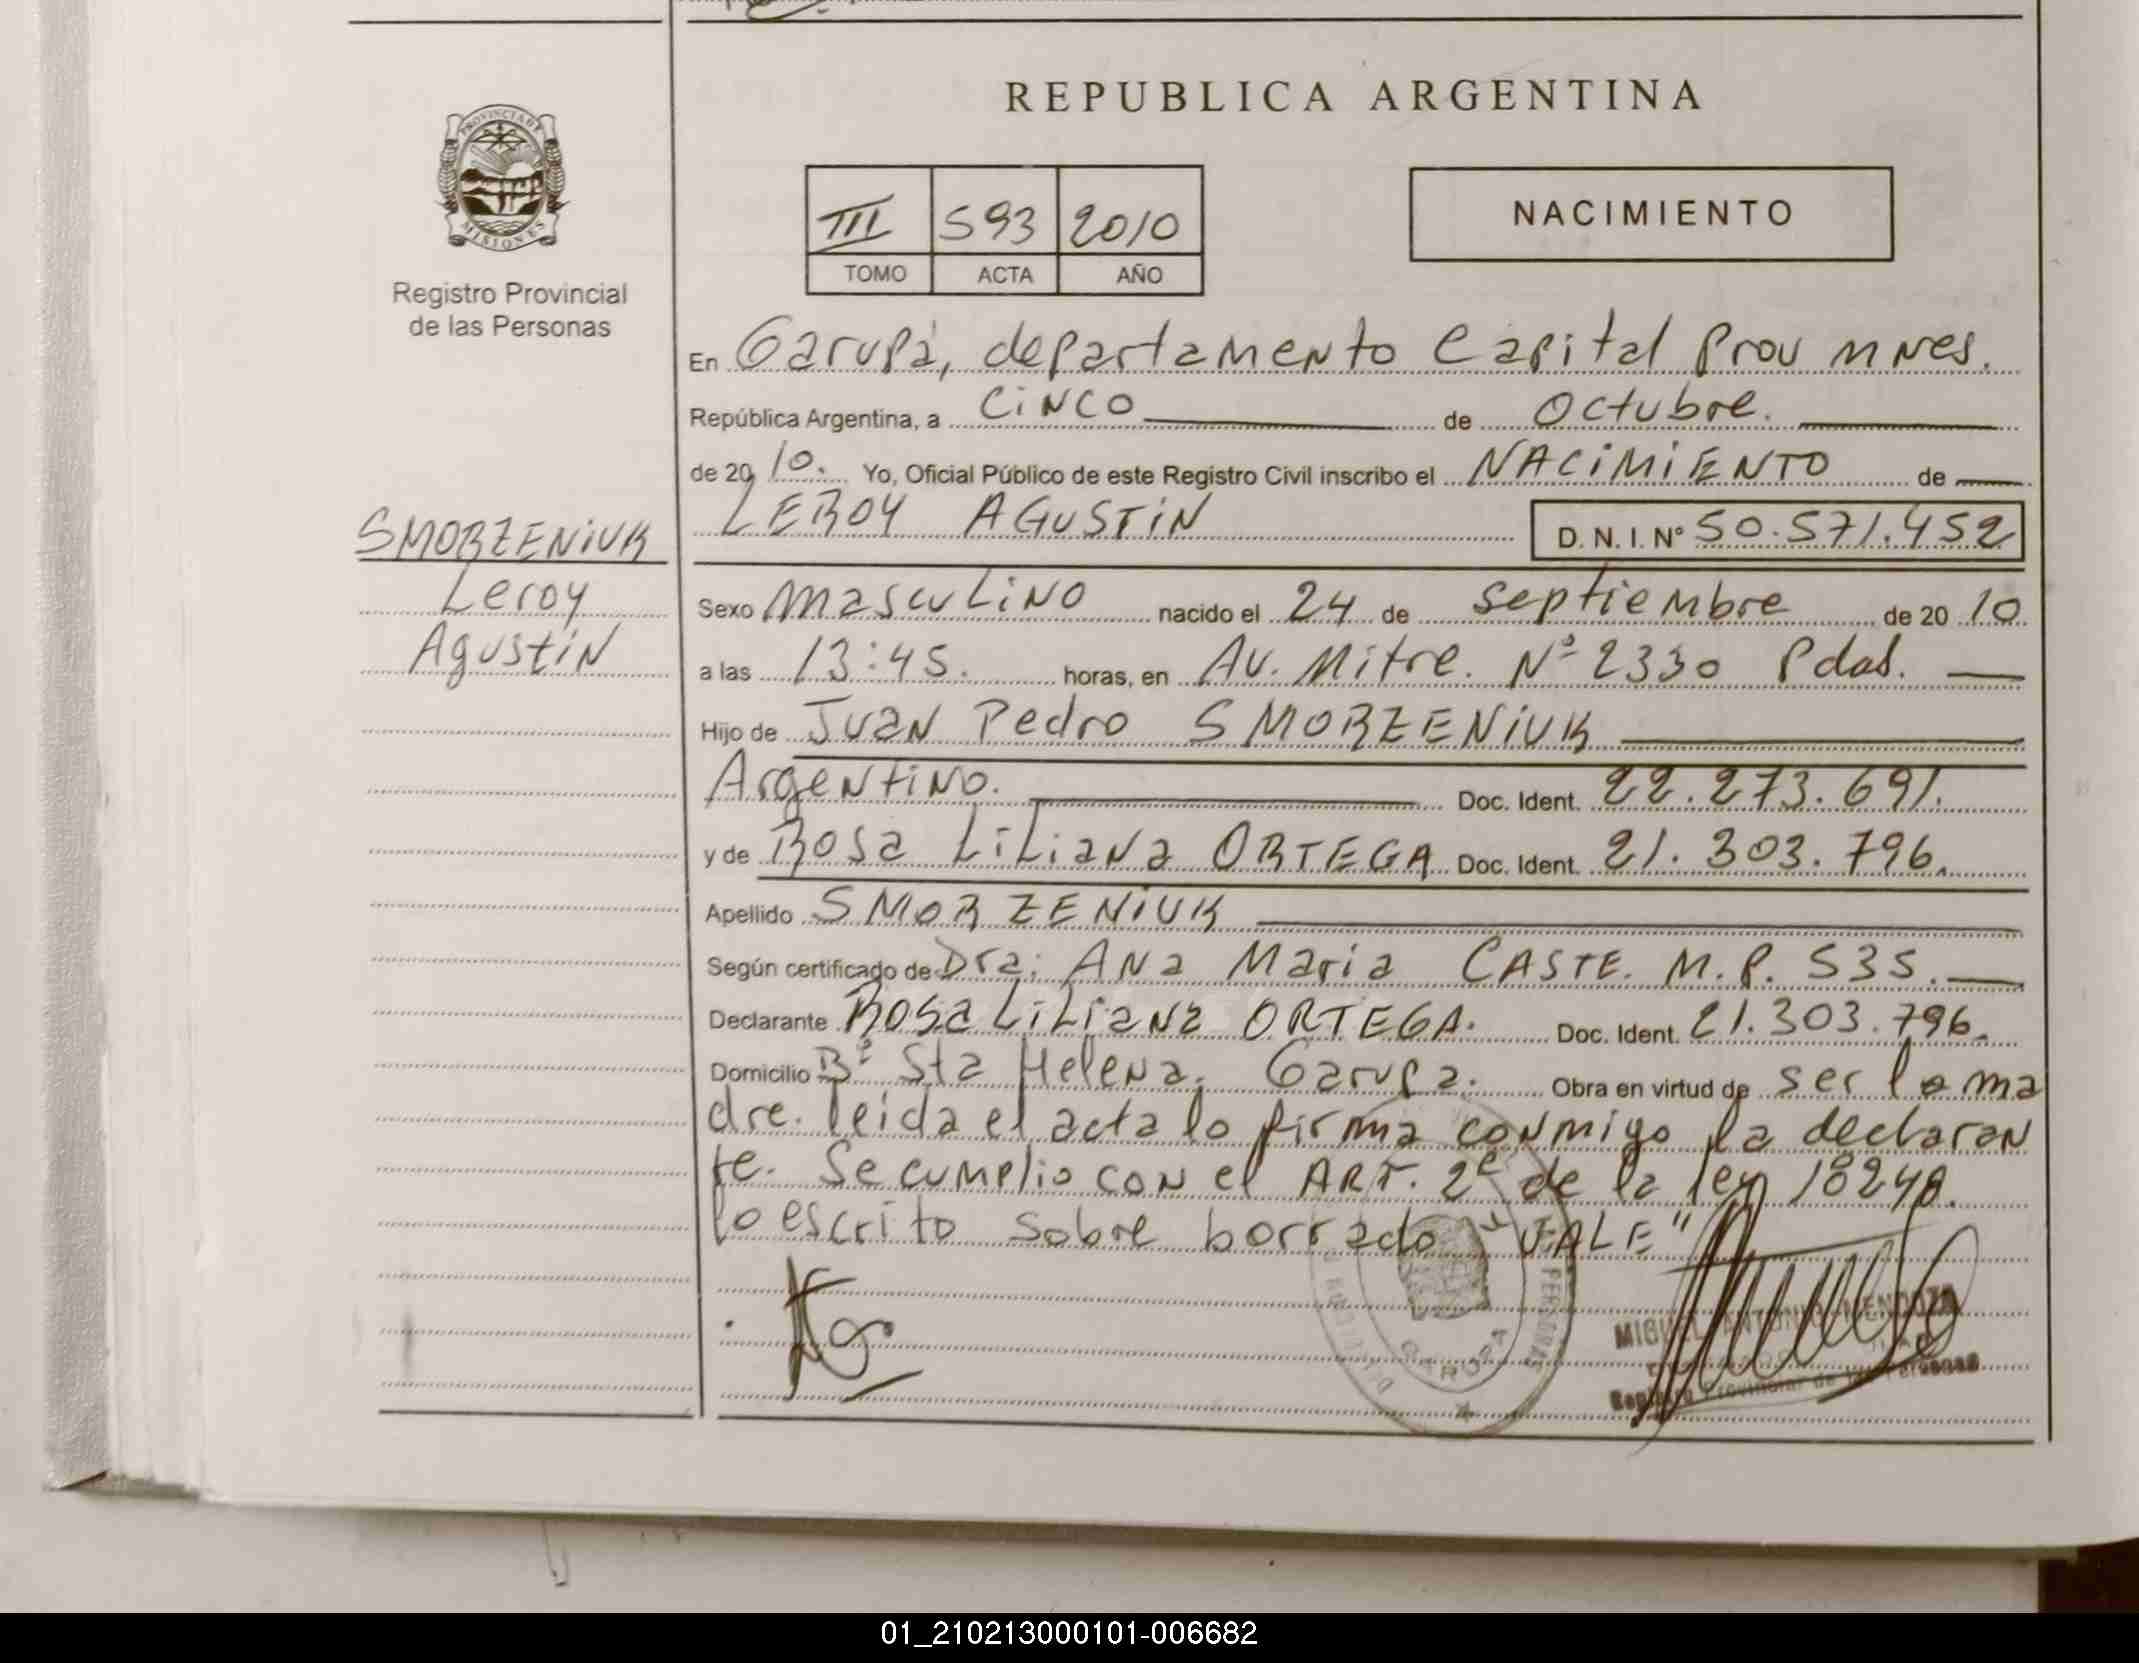 REPUBLICA ARGENTINA
PROVINCIA DE
MISIONES
Registro Provincial
de las Personas
III 593 2010
TOMO ACTA AÑO
NACIMIENTO
En Garupá, departamento Capital Prov mnes.
República Argentina, a cinco de Octubre.
de 2010. Yo, Oficial Público de este Registro Civil inscribo el NACIMIENTO de
LEROY AGUSTIN D.N.I. Nº 50.571.452
SMORZENIUK
Leroy
Agustin
Sexo masculino nacido el 24 de septiembre de 2010
a las 13:45. horas, en Av. Mitre. Nº 2330 Pdas.
Hijo de Juan Pedro SMORZENIUK
Argentino. Doc. Ident. 22.273.691.
y de Rosa Liliana ORTEGA Doc. Ident. 21.303.796.
Apellido SMORZENIUK
Según certificado de Dra: Ana Maria CASTE. M.P. 535.
Declarante Rosa Liliana ORTEGA. Doc. Ident. 21.303.796.
Domicilio Bº Sta Helena. Garupa. Obra en virtud de ser la ma
dre. leida el acta lo firma conmigo la declaran
te. Se cumplio con el ART. 2º de la ley 18248.
lo escrito sobre borrado "VALE"
GARUPA
MIGUEL ANTONIO MENDOZA
Registro Provincial de las Personas
01_210213000101-006682